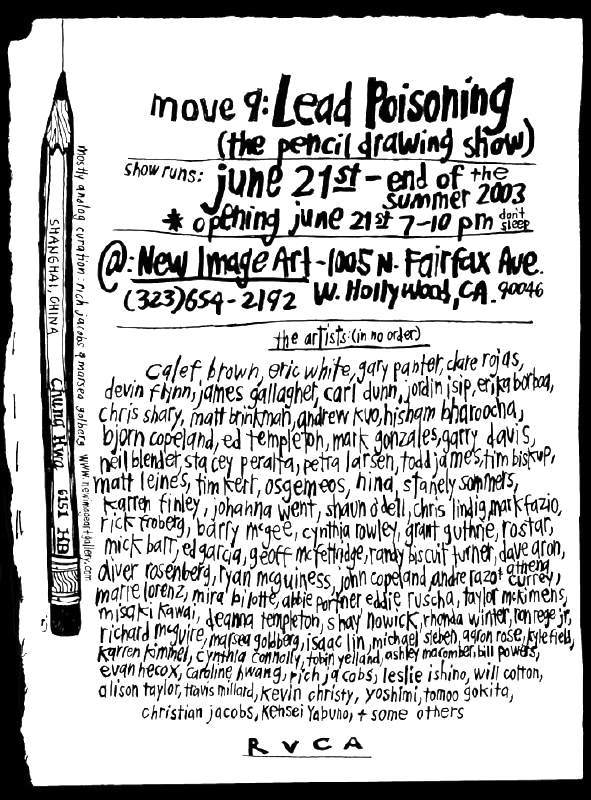 move 9: Lead Poisoning
(the pencil drawing show)
show runs: june 21st - end of the
summer 2003
* opening june 21st 7-10 pm don't
sleep
@: New Image Art - 1005 N. Fairfax Ave.
(323)654-2192 W. Hollywood, CA. 90046
the artists: (in no order)
calef brown, eric white, gary panter, clare rojas,
devin flynn, james gallagher, carl dunn, jordin isip, erika borboa,
chris shary, matt brinkman, andrew kuo, hisham bharoocha,
bjorn copeland, ed templeton, mark gonzales, garry davis,
neil blender, stacey peralta, petra larsen, todd james, tim biskup,
matt leines, tim kerr, osgemeos, hina, stanely sommers,
karren finley, johanna went, shaun o'dell, chris lindig, mark fazio,
rick froberg, barry mcgee, cynthia rowley, grant guthrie, rostar,
mick barr, ed garcia, geoff mcfettridge, randy biscuit turner, dave aron,
oliver rosenberg, ryan mcguiness, john copeland, andre razo, athena currey,
marie lorenz, mira bilotte, abbie portner eddie ruscha, taylor mckimens,
misaki kawai, deanna templeton, shay nowick, rhonda winter, ron rege jr,
richard mcguire, marsea goldberg, isaac lin, michael sieben, aaron rose, kyle field,
karren kimmel, cynthia connolly, tobin yelland, ashley macomber, bill powers,
evan hecox, caroline hwang, rich jacobs, leslie ishino, will cotton,
alison taylor, travis millard, kevin christy, yoshimi, tomoo gokita,
christian jacobs, kensei yabuno, + some others
RVCA
mostly analog curation: rich jacobs & marsea golberg www.newimageartgallery.com
SHANGHAI, CHINA
Chung Hwa
6151 HB
rj